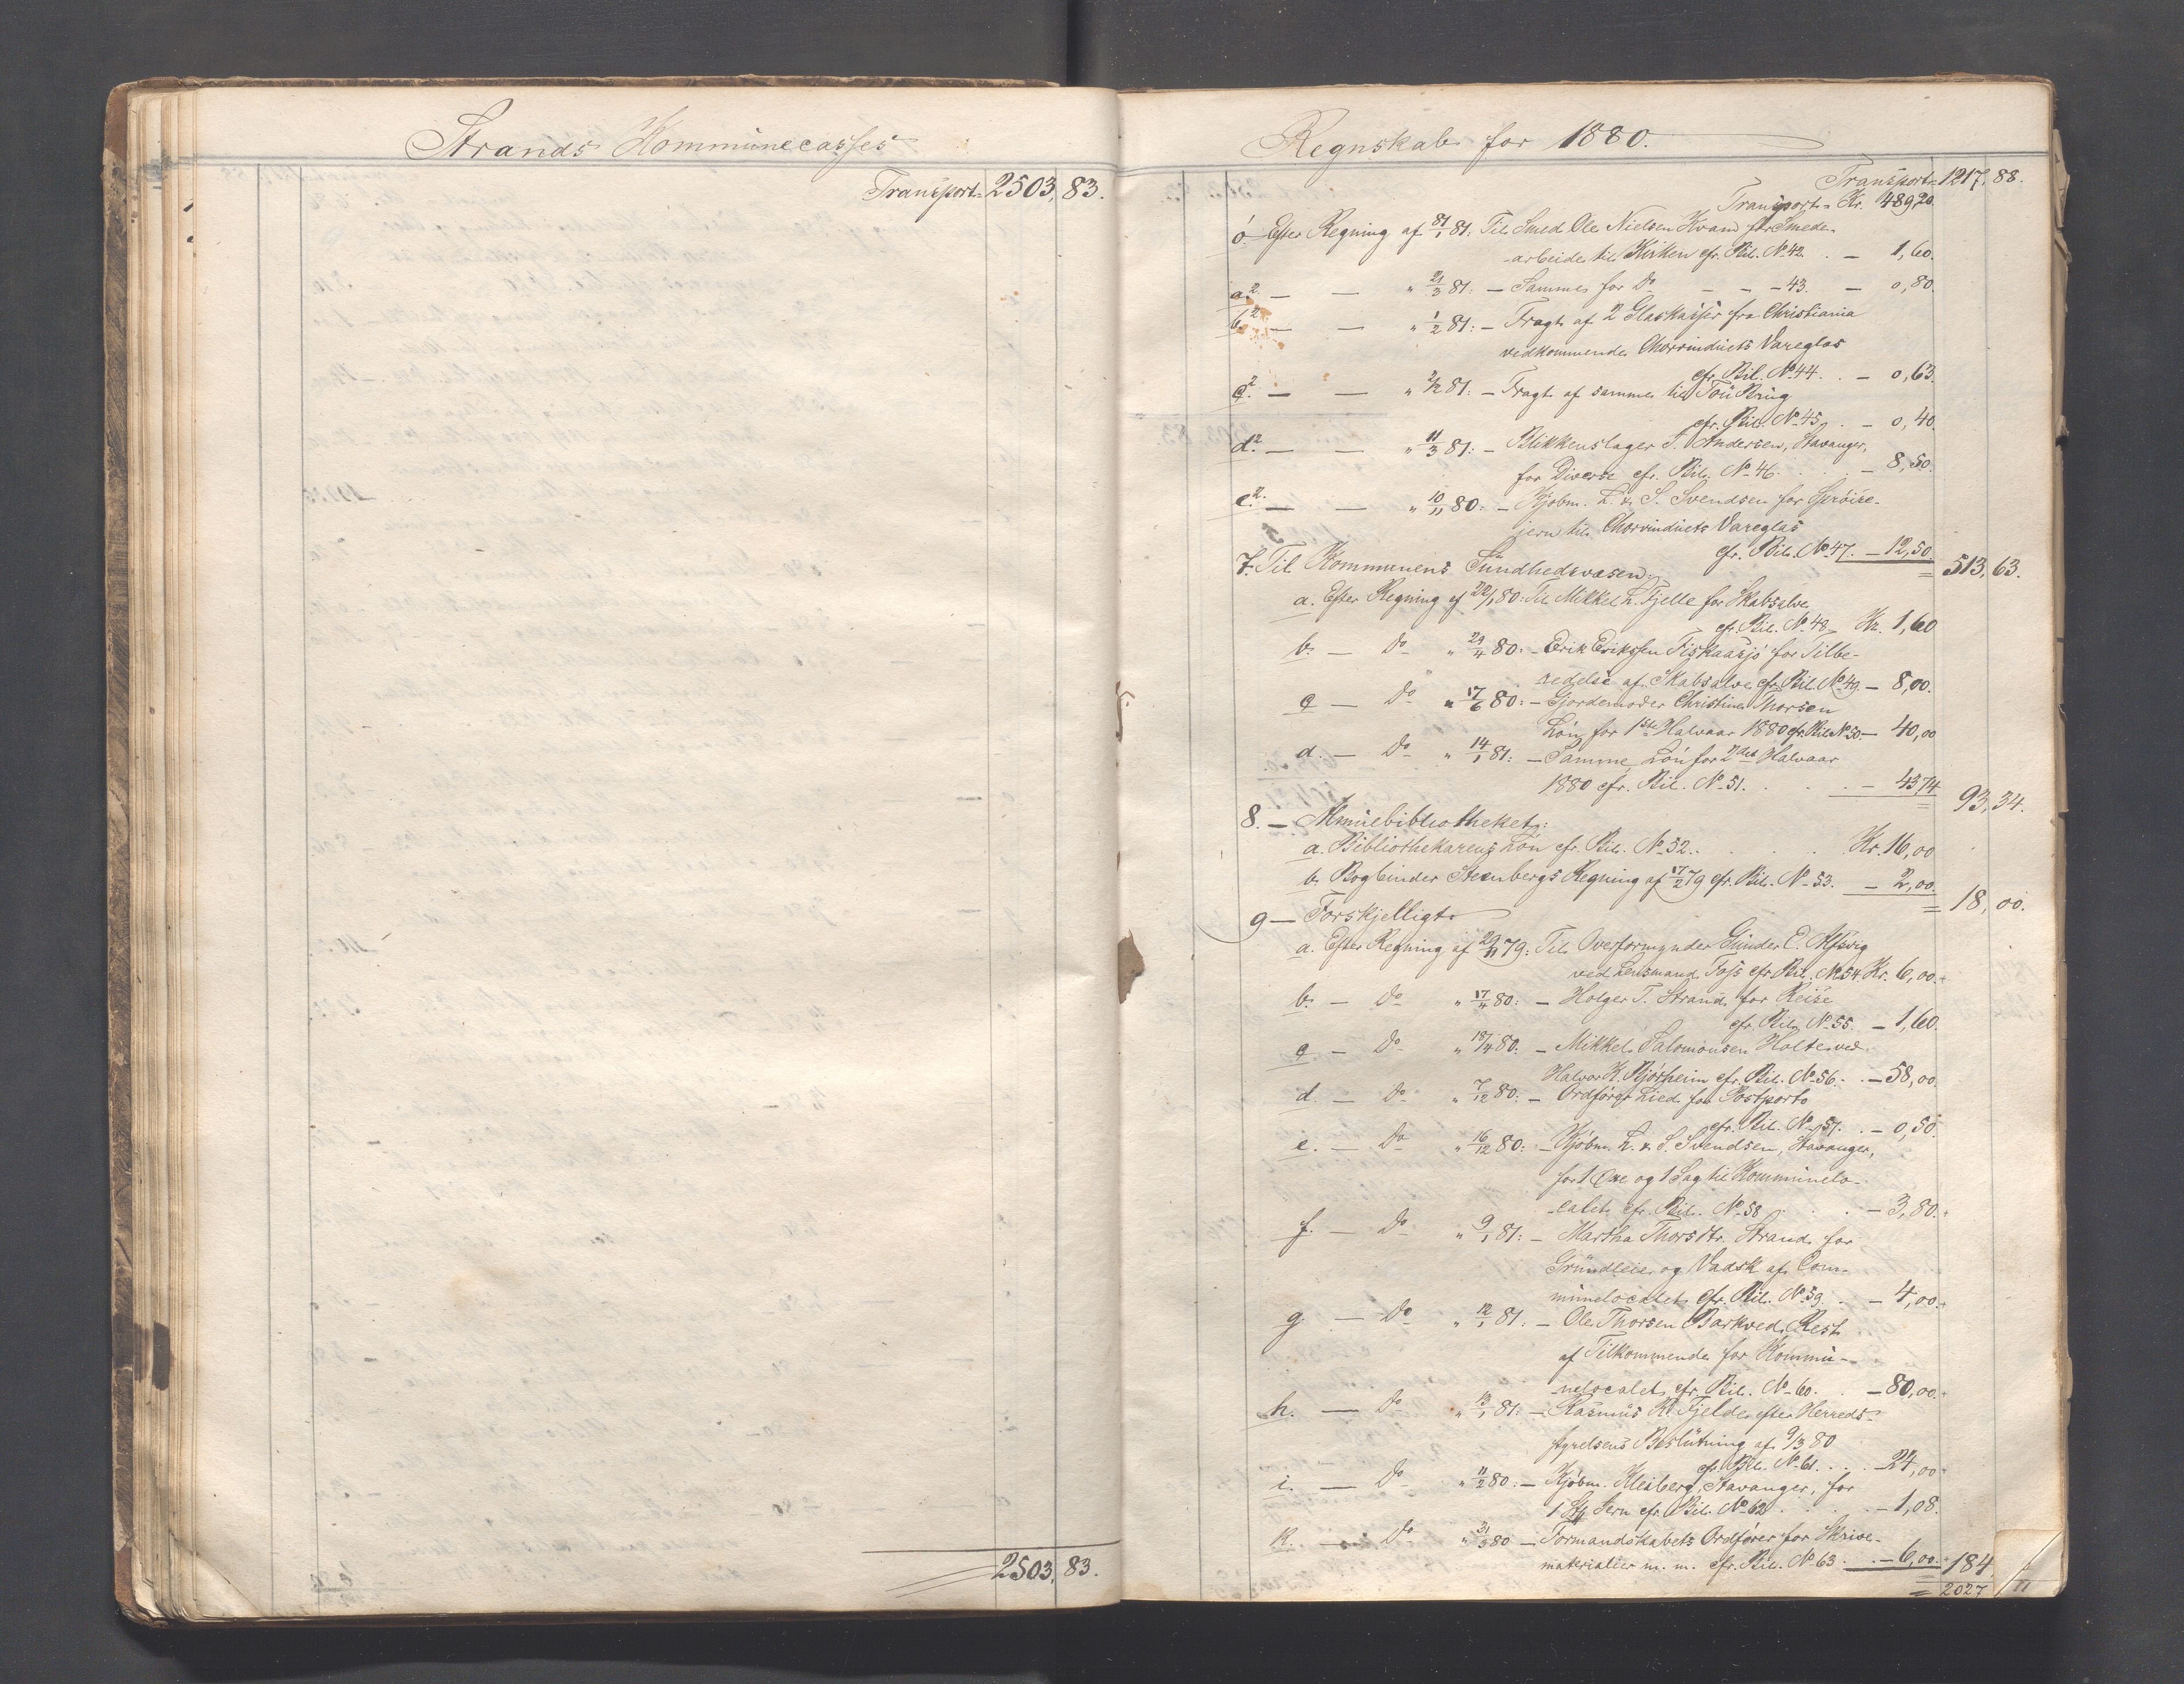 Strands Kommunecasses
Transport 2503,83.
2503,83.
Regnskab for 1880.
Transport 1217,88.
Transport Kr. 489,20
ó. Efter Regning af 31/1 81: Til Smed Ole Nielsen Kvam for Smede-
arbeide til Kirken cfr. Bil. No 42. — 1,60.
a2. — — " 21/3 81: — Samme for Do — — 43. — 0,80.
b2. — — " 1/2 81: — Fragt af 2 Glaskasser fra Christiania
vedkommende Chorvinduets Vareglas
cfr. Bil. No 44. . — 0,63.
c2. — — " 2/2 81: — Fragt af samme til Tou Brug
cfr. Bil. No 45. . — 0,40.
d2. — — " 11/3 81: — Blikkenslager T. Andersen, Stavanger,
for Diverse cfr. Bil. No 46. . . . — 8,50.
e2. — — " 10/11 80: — Kjøbm. L. & S. Svendsen for Spröise-
jern til Chorvinduets Vareglas
cfr. Bil. No 47. — 12,50.
= 513,63.
7. Til Kommunens Sundhedsvæsen:
a. Efter Regning af 22/1 80: Til Mikkel L. Fjelle for Skabsalve
cfr. Bil. No 48 Kr. 1,60
b. — Do " 29/4 80: — Erik Eriksen Fiskaasjö for Tilbe-
redelse af Skabsalve cfr. Bil. No 49. — 8,00.
c — Do " 17/6 80: — Gjordemoder Christine Thorsen
Lön for 1ste Halvaar 1880 cfr. Bil. No 50. — 40,00
d. — Do " 14/1 81: — Samme, Lön for 2det Halvaar
1880 cfr. Bil. No 51. . . . — 43,74
= 93,34.
8. — Almuebibliotheket:
a. Bibliothekarens Lön cfr. Bil. No 52. . . . . Kr. 16,00
b. Bogbinder Steenbergs Regning af 17/2 79 cfr. Bil. No 53. — 2,00.
= 18,00.
9 — Forskjelligt
a. Efter Regning af 29/11 79: Til Overformynder Gunder E. Alfsvig
ved Lensmand Foss cfr. Bil. No 54 Kr. 6,00.
b. — Do " 17/4 80: — Holger T. Strand for Reise
cfr. Bil. No 55. — 1,60.
c — Do " 18/4 80: — Mikkel Salomonsen Holte ved
Halvor K. Bjørheim cfr. Bil. No 56. . — 58,00.
d. — Do " 7/12 80: — Ordfører Lied for Postporto
cfr. Bil. No 57. . — 0,50.
e. — Do " 16/12 80: — Kjøbm. L. & S. Svendsen, Stavanger,
for 1 Öxe og 1 Sag til Kommunelo-
calet cfr. Bil. No 58 . . . — 3,80.
f. — Do " 9/1 81: — Martha Thorsdtr. Strand for
Grundleie og Vadsk af Com-
munelocalet cfr. Bil. No 59. . — 4,00.
g. — Do " 12/1 81: — Ole Thorsen Barkved, Rest
af Tilkommende for Kommu-
nelocalet cfr. Bil. No 60. . — 80,00.
h. — Do " 13/1 81: — Rasmus K. Fjelde efter Herreds-
styrelsens Beslutning af 9/3 80
cfr. Bil. No 61. . . . — 24,00
i. — Do " 11/2 80: — Kjøbm. Kleiberg, Stavanger, for
1 Jern cfr. Bil. No 62 . . . . — 1,08.
k. — Do " 31/3 80 — Formandskabets Ordfører for Skrive-
materialier m. m. cfr. Bil. No 63. . — 6,00. 184,
= 2027